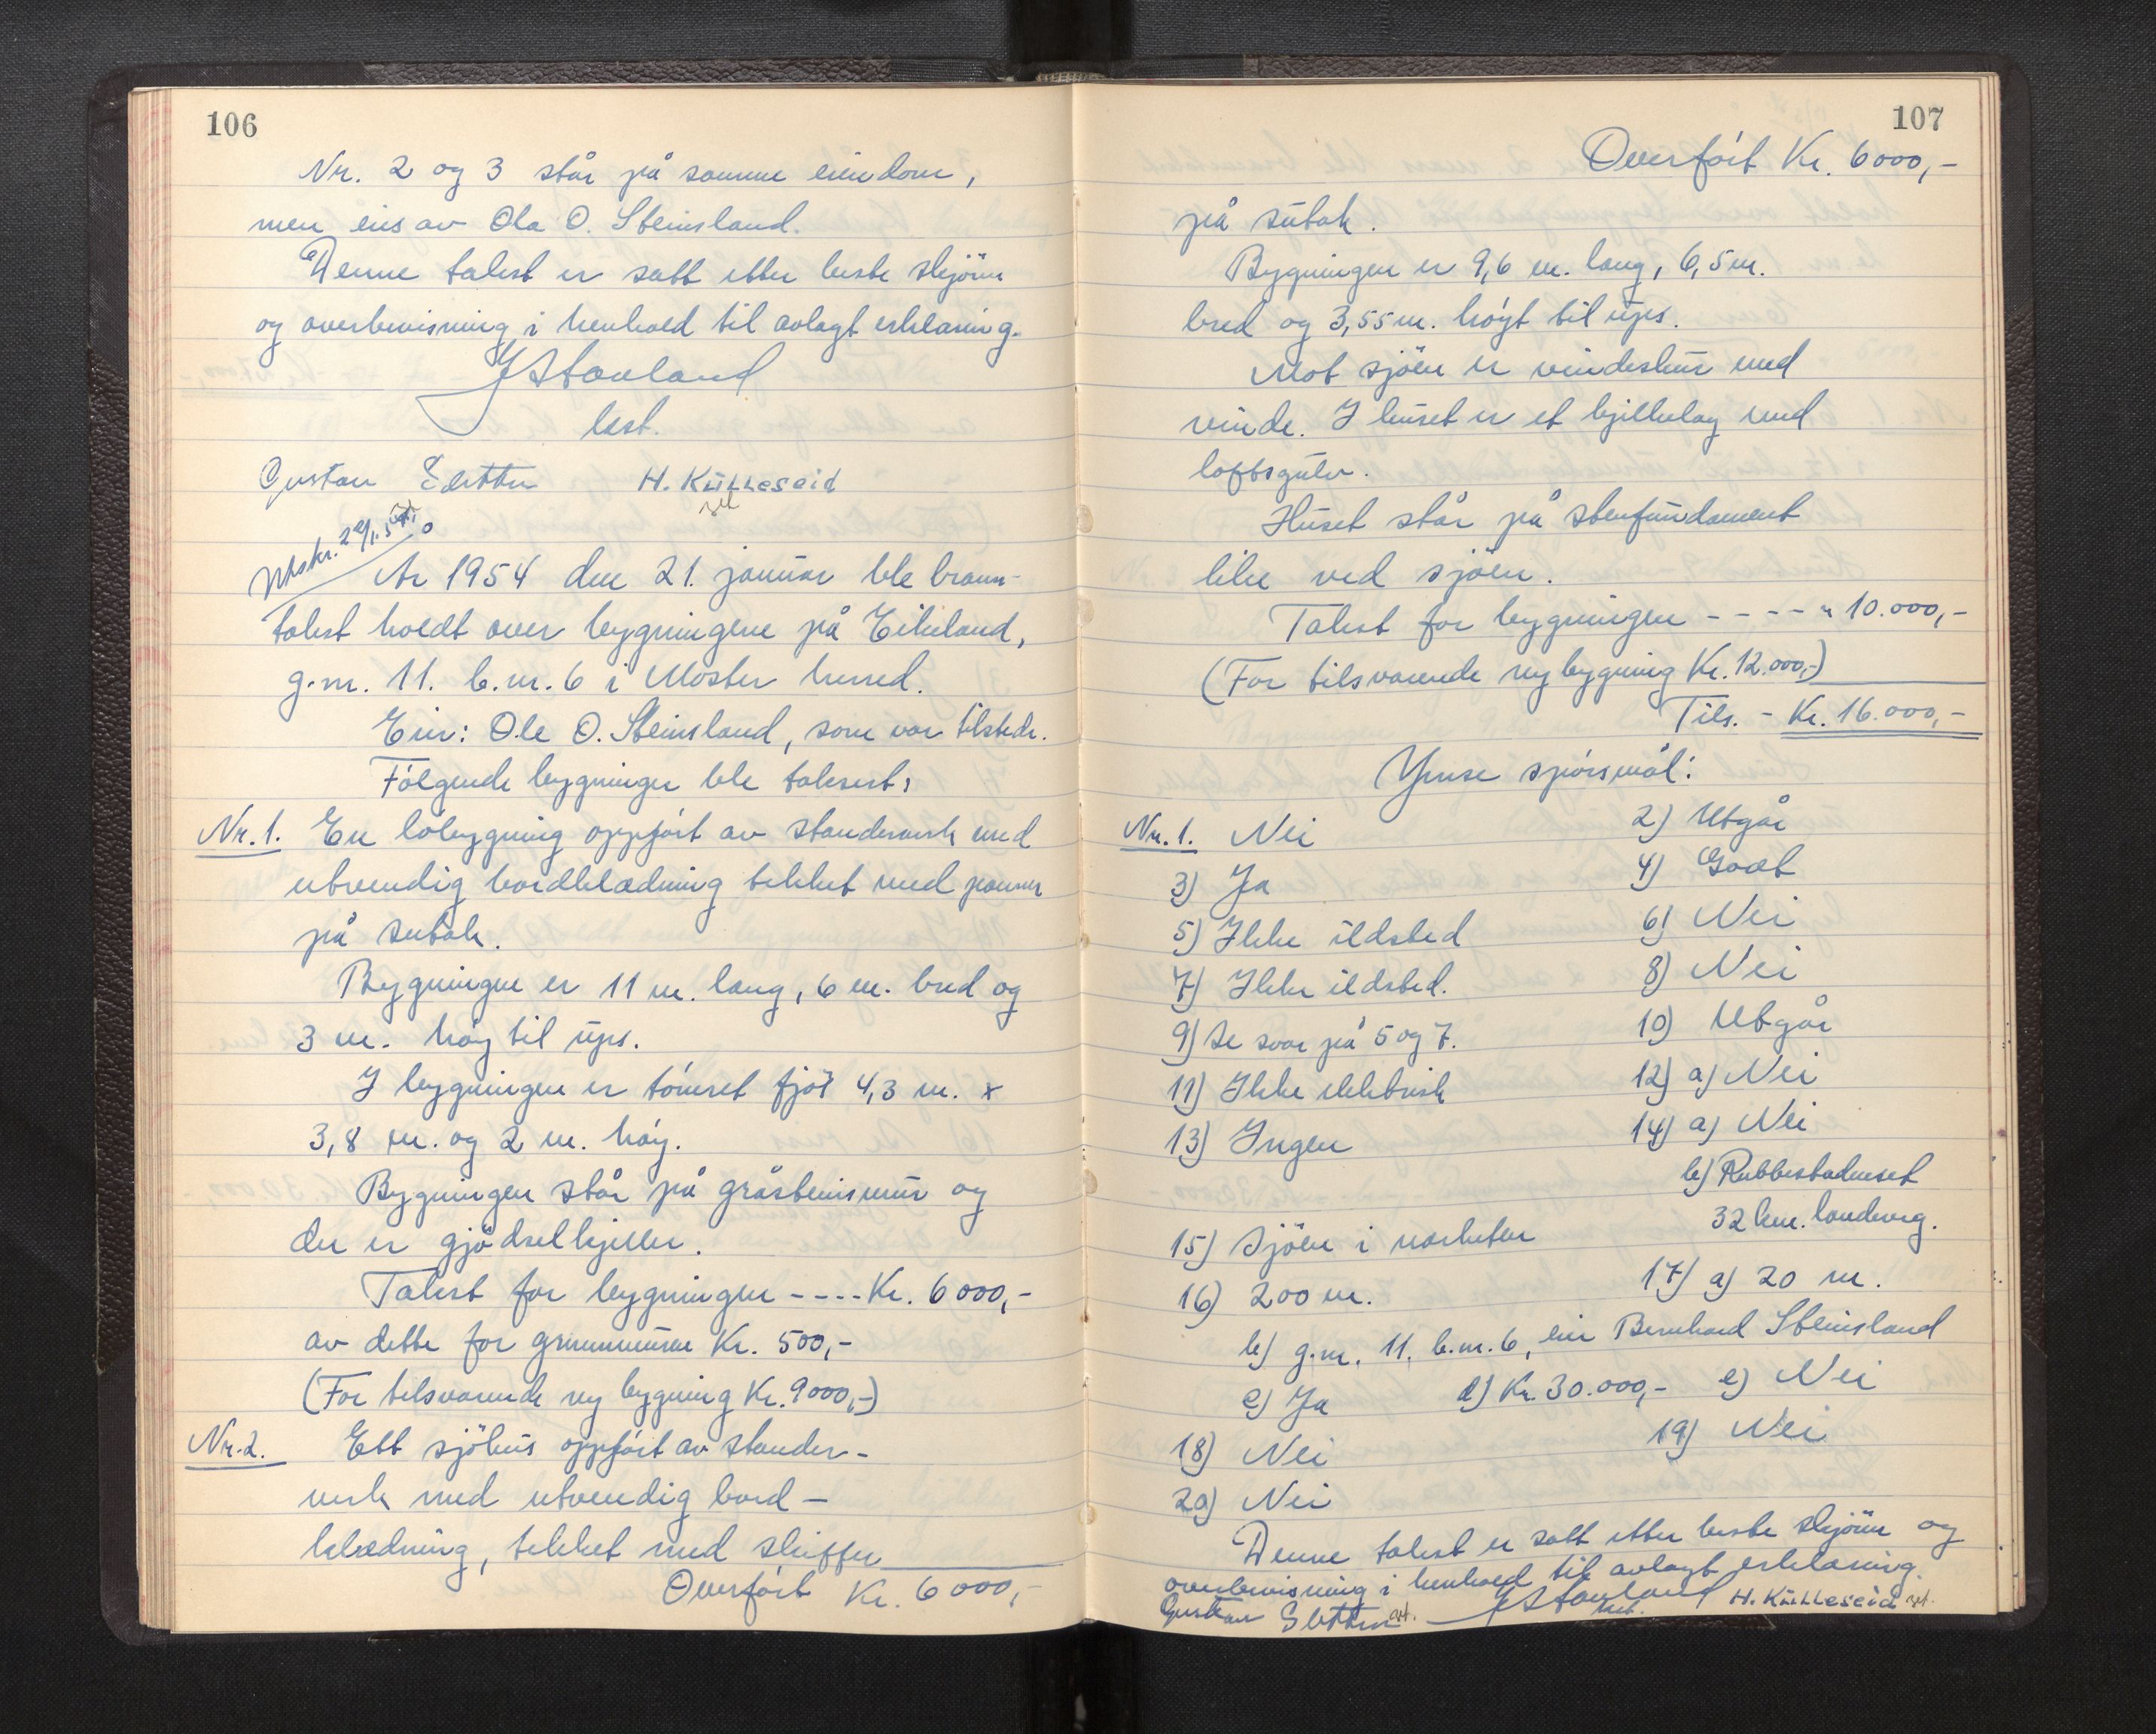 106
Nr. 2 og 3 står på samme eiendom,
men eies av Ola O. Steinsland.
Denne takst er satt etter beste skjönn
og overbevisning i henhold til avlagt erklæring.
JStavland
lest.
Gustav H. Külleseid
Utskr.
År 1954 den 21. januar ble brann-
takst holdt over bygningene på Eikeland,
g.nr. 11. b.nr. 6 i Moster herred.
Eier: Ole O. Steinsland, som var tilstede.
Fölgende bygninger ble taksert:
Nr. 1. En löbygning oppfört av standerverk med
utvendig bordklædning tekket med panner
på sutak.
Bygningen er 11 m. lang, 6 m. bred og
3 m. höy til ups.
I bygningen er tömret fjös 4,3 m. x
3,8 m. og 2 m. höy.
Bygningen står på gråsteinsmur og
der er gjödselkjeller.
Takst for bygningen ---- Kr. 6000,-
av dette for grunnmuren Kr. 500,-
(For tilsvarende ny bygning Kr. 9000,-)
Nr. 2. Ett sjöhus oppfört av stander-
verk med utvendig bord-
klædning, tekket med skiffer
Overfört Kr. 6000,-
107
Overfört Kr. 6000,-
på sutak.
Bygningen er 9,6 m. lang, 6,5 m.
bred og 3,55 m. höyt til ups.
Mot sjöen er vindeskur med
vinde. I huset er et bjelkelag med
loftsgulv.
Huset står på stenfundament
like ved sjöen.
Takst for bygningen ---- " 10.000,-
(For tilsvarende ny bygning Kr. 12.000,-)
Tils. - Kr. 16.000,-
Ymse spörsmål:
Nr. 1. Nei 2) Utgår
3) Ja 4) Godt
5) Ikke ildsted 6) Nei
7) Ikke ildsted. 8) Nei
9) Se svar på 5 og 7. 10) Utgår
11) Ikke elektrisk 12) a) Nei
13) Ingen 14) a) Nei
b) Rubbestadneset
32 km. landeveg.
15) Sjöen i nærheten
16) 200 m. 17) a) 20 m.
b) g.nr. 11. b.nr. 6, eier Bernhard Steinsland
c) Ja d) Kr. 30.000,- e) Nei
18) Nei 19) Nei
20) Nei
Denne takst er satt etter beste skjönn og
overbevisning i henhold til avlagt erklæring.
Gustav JStavland H. Külleseid
lest.